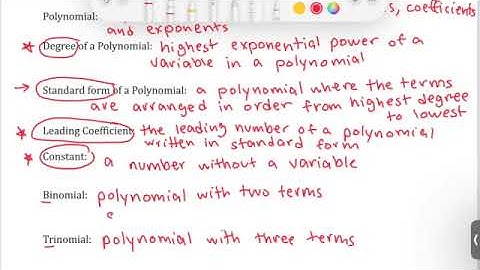 s, coefficients
Polynomial:
and exponents
Degree of a Polynomial: highest exponential power of a
variable in a polynomial
Standard form of a Polynomial: a polynomial where the terms
are arranged in order from highest degree
to lowest
Leading Coefficient: the leading number of a polynomial
written in standard form
Constant: a number without a variable
Binomial: polynomial with two terms
Trinomial: polynomial with three terms